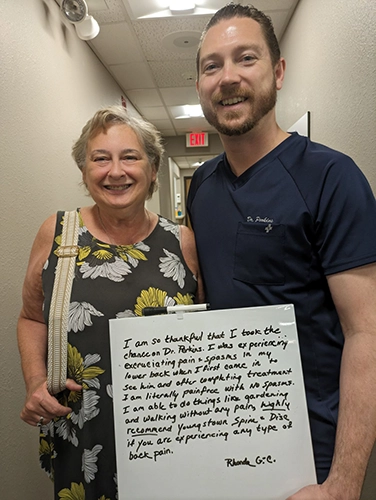 EXIT
Dr. Perkins
I am so thankful that I took the
chance on Dr. Perkins. I was experiencing
excruciating pain + spasms in my
lower back when I first came in to
see him and after completing treatment
I am literally painfree with no spasms.
I am able to do things like gardening
and walking without any pain, highly
recommend Youngstown Spine + Disc
if you are experiencing any type of
back pain.
Rhonda G.C.